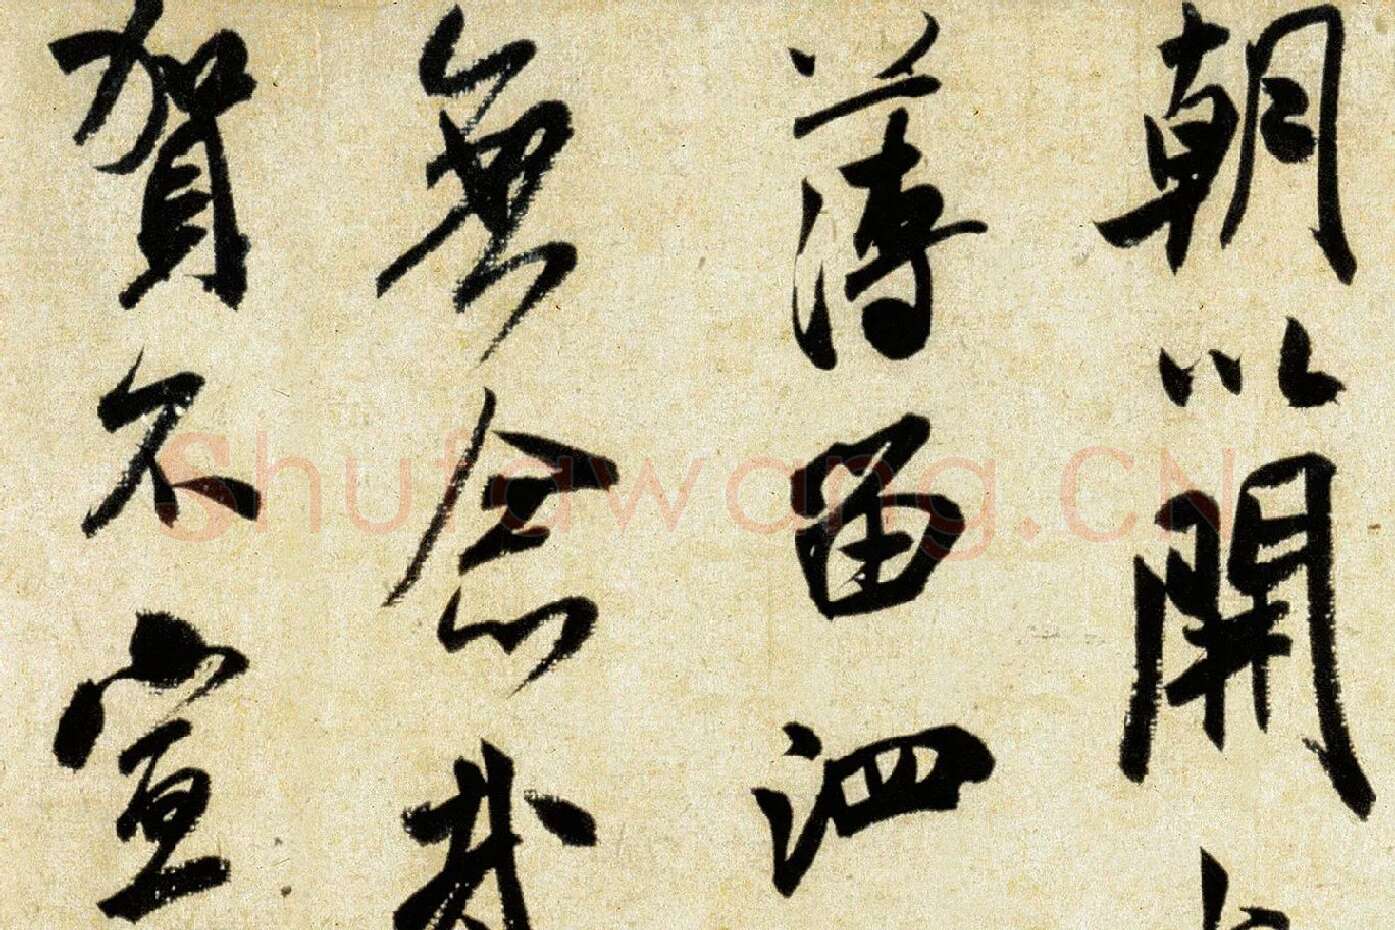 朝以開
薄留泗
無念我
賀不宣
Shufawang.CN